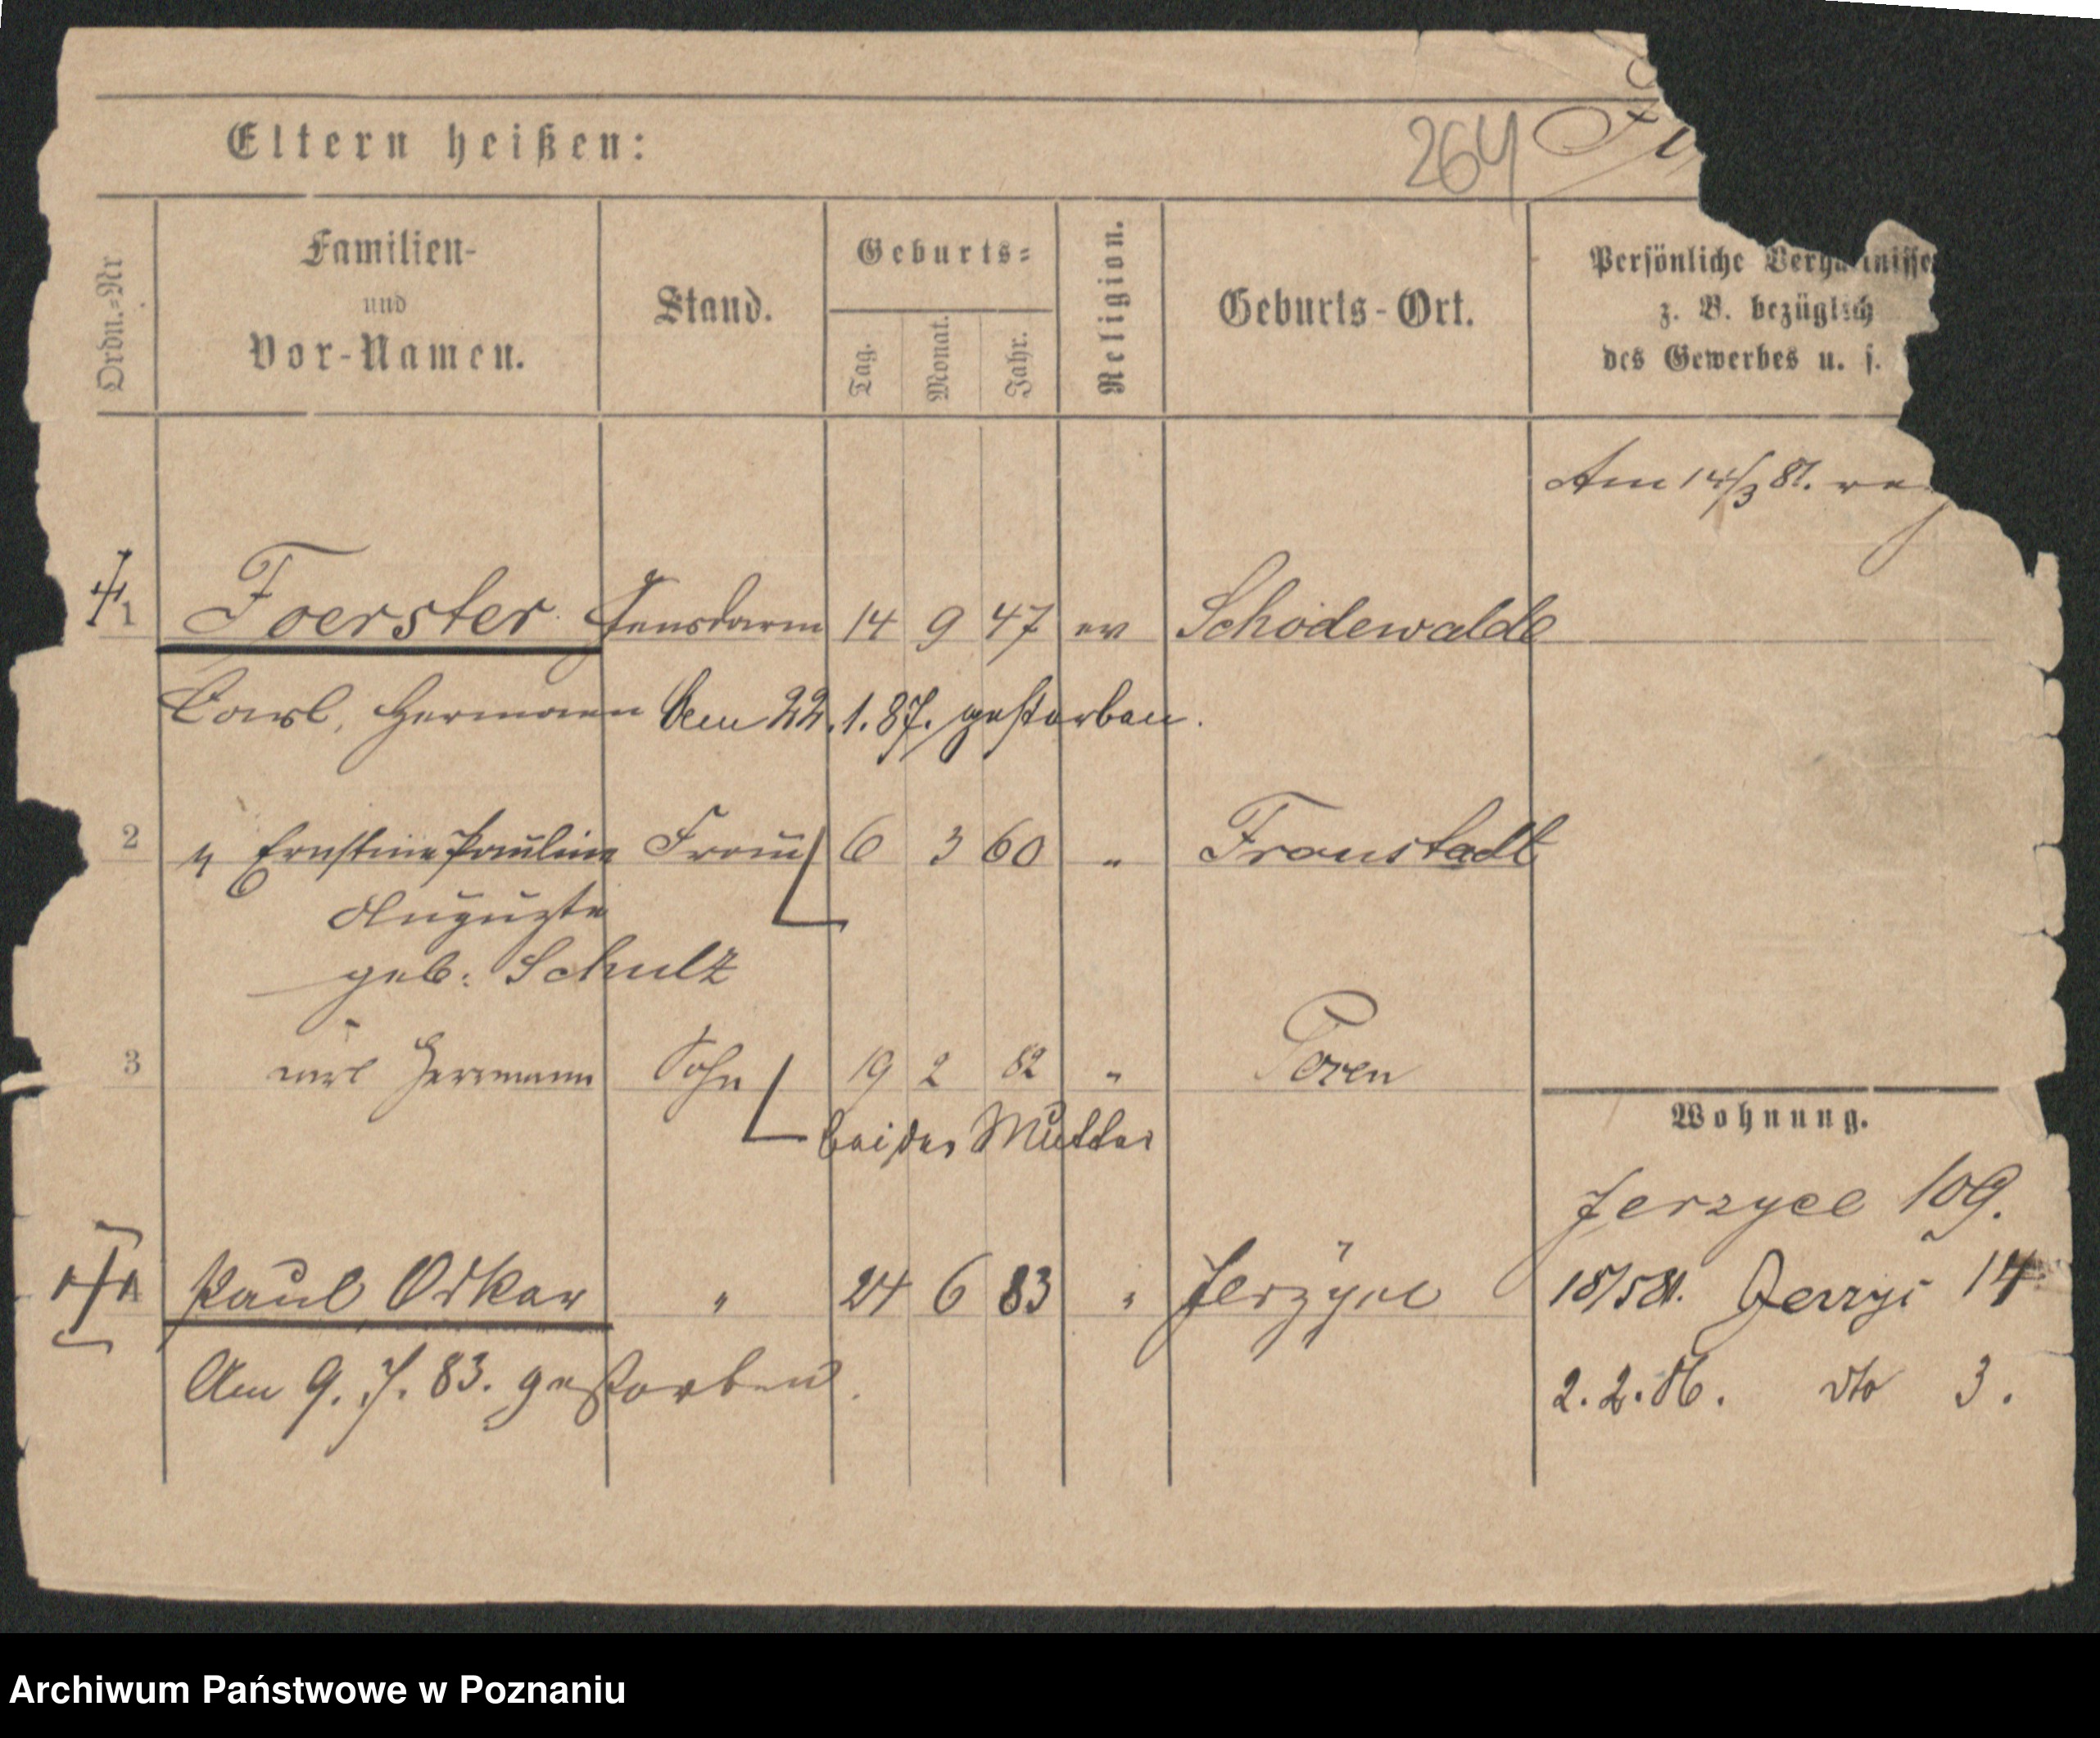 Eltern heißen:
264
Ordn.=Nr
Familien-
und
Vor-Namen.
Stand.
Geburts=
Tag.
Monat.
Jahr.
Religion.
Geburts-Ort.
Persönliche Verhältnisse
z. B. bezüglich
des Gewerbes u. s.
Am 14/3 81.
1 Foerster Gensdarm 14 9 47 ev Schödewalde
Carl, Hermann Am 22.1.87. gestorben.
2 " Ernstine Pauline Frau 6 3 60 " Fraustadt
Auguste
geb: Schulz
3 Herrmann Sohn 19 2 82 " Posen
bei der Mutter
Wohnung.
Jerzyce 109.
Paul Oskar " 24 6 83 " Jerzyce
15/5 81. 14
Am 9. 7. 83. gestorben.
2.2.86. dto 3.
Archiwum Państwowe w Poznaniu